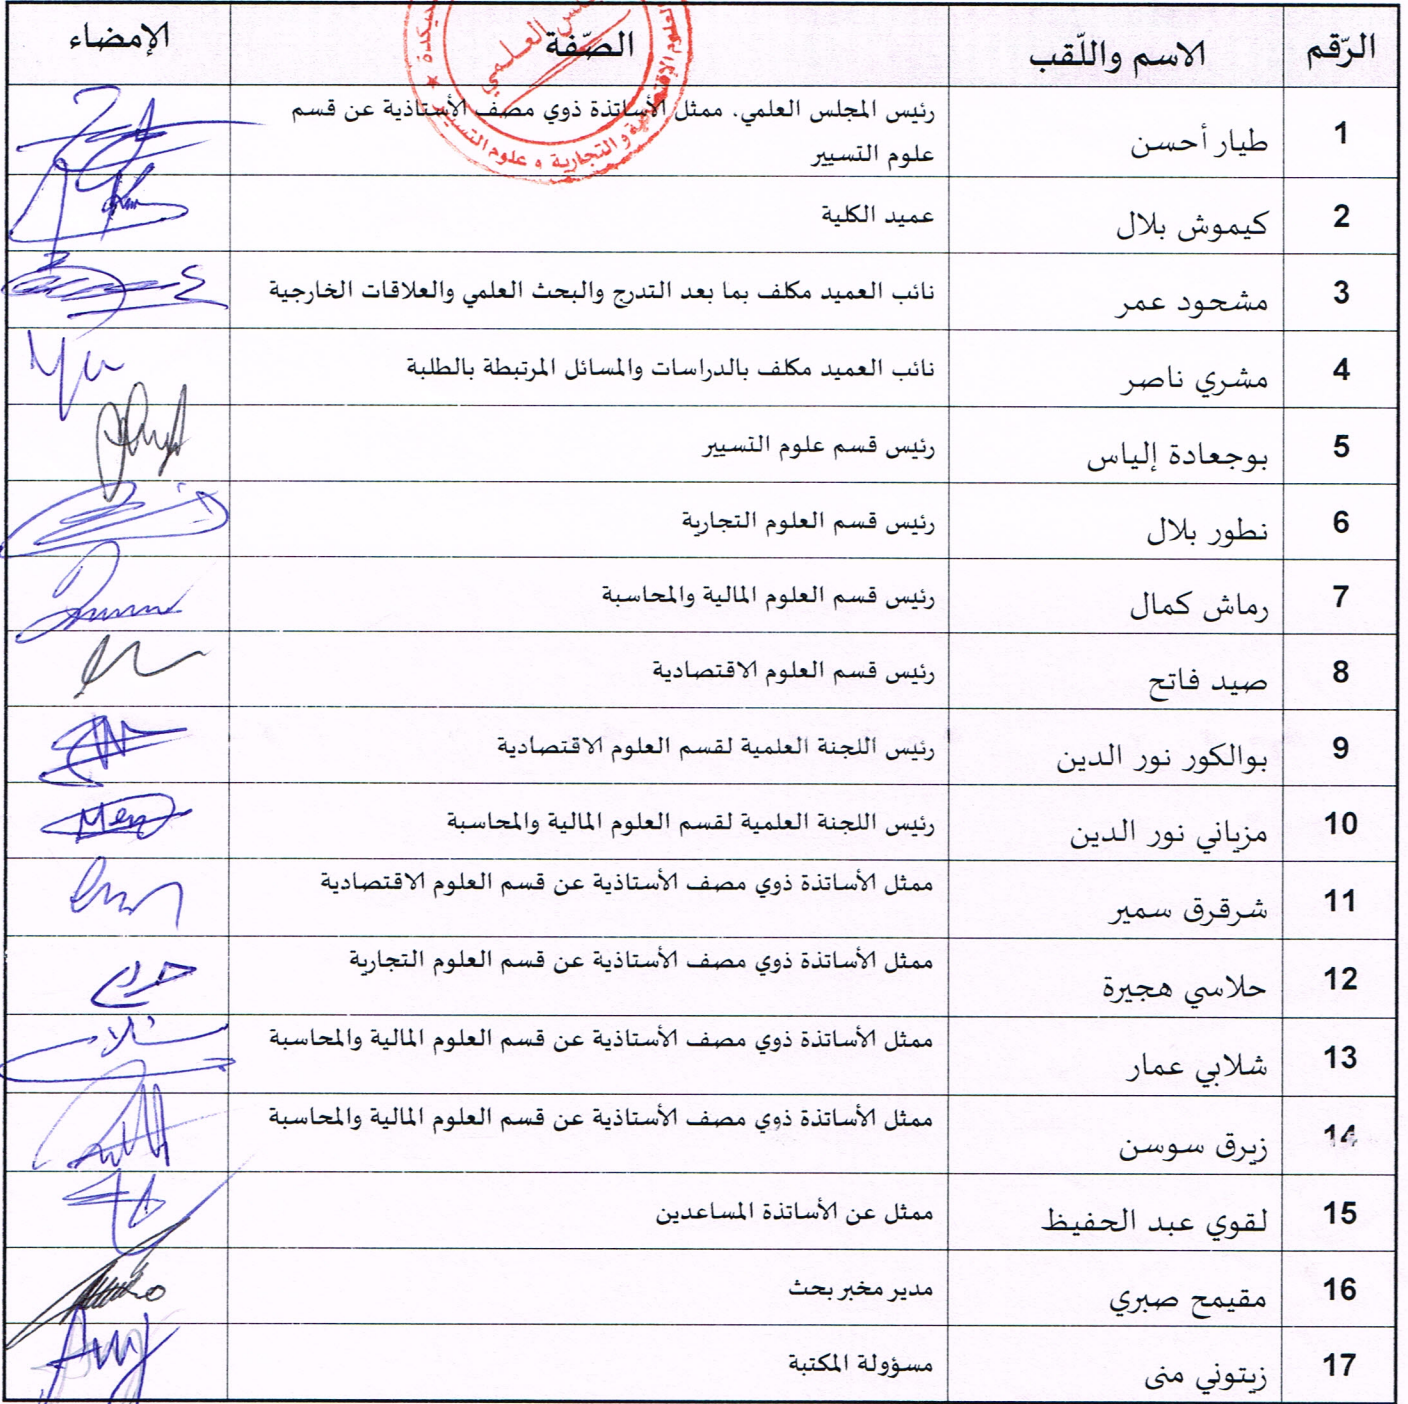 الرّقم الاسم واللّقب الصّفة الإمضاء
س العلمي
العلوم الإقتصادية و التجارية و علوم التسيير ★ سكيكدة
1 طيار أحسن رئيس المجلس العلمي. ممثل الأساتذة ذوي مصف الأستاذية عن قسم
علوم التسيير
2 كيموش بلال عميد الكلية
3 مشحود عمر نائب العميد مكلف بما بعد التدرج والبحث العلمي والعلاقات الخارجية
4 مشري ناصر نائب العميد مكلف بالدراسات والمسائل المرتبطة بالطلبة
5 بوجعادة إلياس رئيس قسم علوم التسيير
6 نطور بلال رئيس قسم العلوم التجارية
7 رماش كمال رئيس قسم العلوم المالية والمحاسبة
8 صيد فاتح رئيس قسم العلوم الاقتصادية
9 بوالكور نور الدين رئيس اللجنة العلمية لقسم العلوم الاقتصادية
10 مزياني نور الدين رئيس اللجنة العلمية لقسم العلوم المالية والمحاسبة
11 شرقرق سمير ممثل الأساتذة ذوي مصف الأستاذية عن قسم العلوم الاقتصادية
12 حلاسي هجيرة ممثل الأساتذة ذوي مصف الأستاذية عن قسم العلوم التجارية
13 شلابي عمار ممثل الأساتذة ذوي مصف الأستاذية عن قسم العلوم المالية والمحاسبة
14 زيرق سوسن ممثل الأساتذة ذوي مصف الأستاذية عن قسم العلوم المالية والمحاسبة
15 لقوي عبد الحفيظ ممثل عن الأساتذة المساعدين
16 مقيمح صبري مدير مخبر بحث
17 زيتوني منى مسؤولة المكتبة